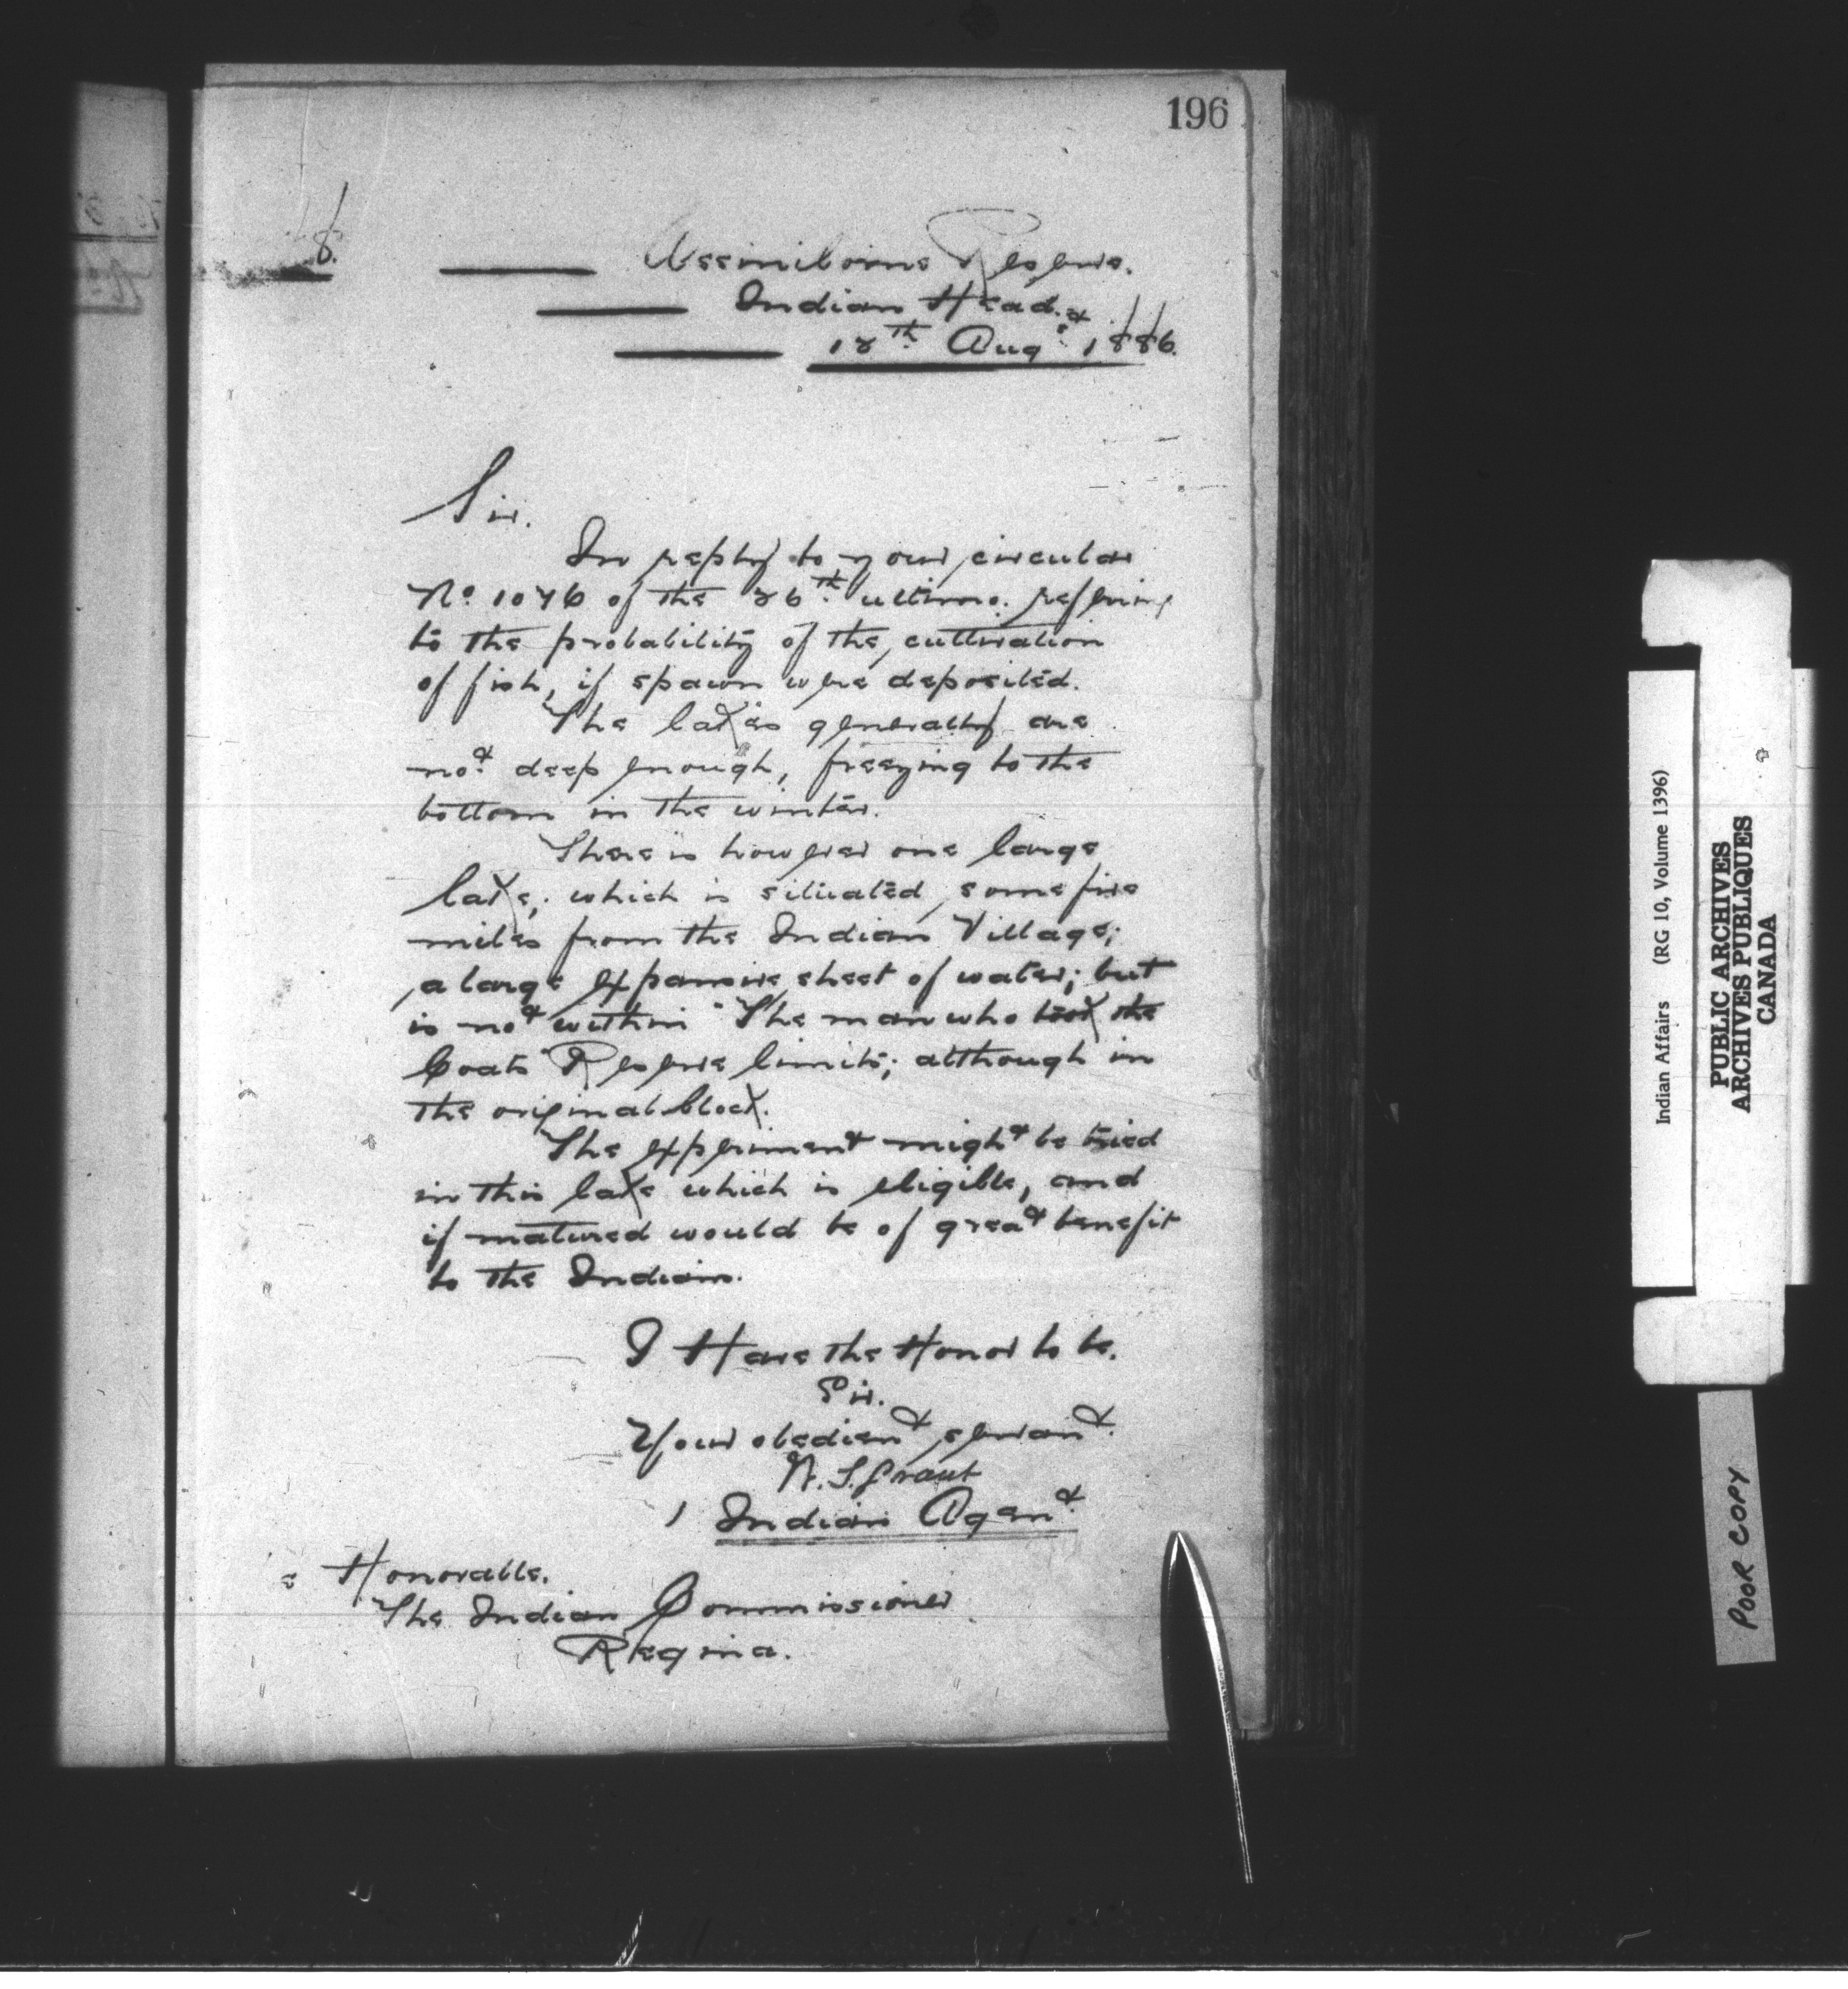 196
8.
Assiniboine Reserve.
Indian Head.
18th Augst 1886.
Sir.
In reply to your circular
No. 1076 of the 26th ultimo. refering
to the probability of the cultivation
of fish, if spawn were deposited.
The lakes generally are
not deep enough, freezing to the
bottom in the winter.
There is however one large
lake, which is situated some five
miles from the Indian Village;
a large expansive sheet of water; but
is not within "The man who took the
Coats" Reserve limits; although in
the original block.
The experiment might be tried
in this lake which is eligible, and
if matured would be of great benefit
to the Indians.
I Have the Honor to be.
Sir.
Your obedient servant.
W. S. Grant
Indian Agent
Honorable.
The Indian Commissioner
Regina.
Indian Affairs (RG 10, Volume 1396)
PUBLIC ARCHIVES
ARCHIVES PUBLIQUES
CANADA
POOR COPY